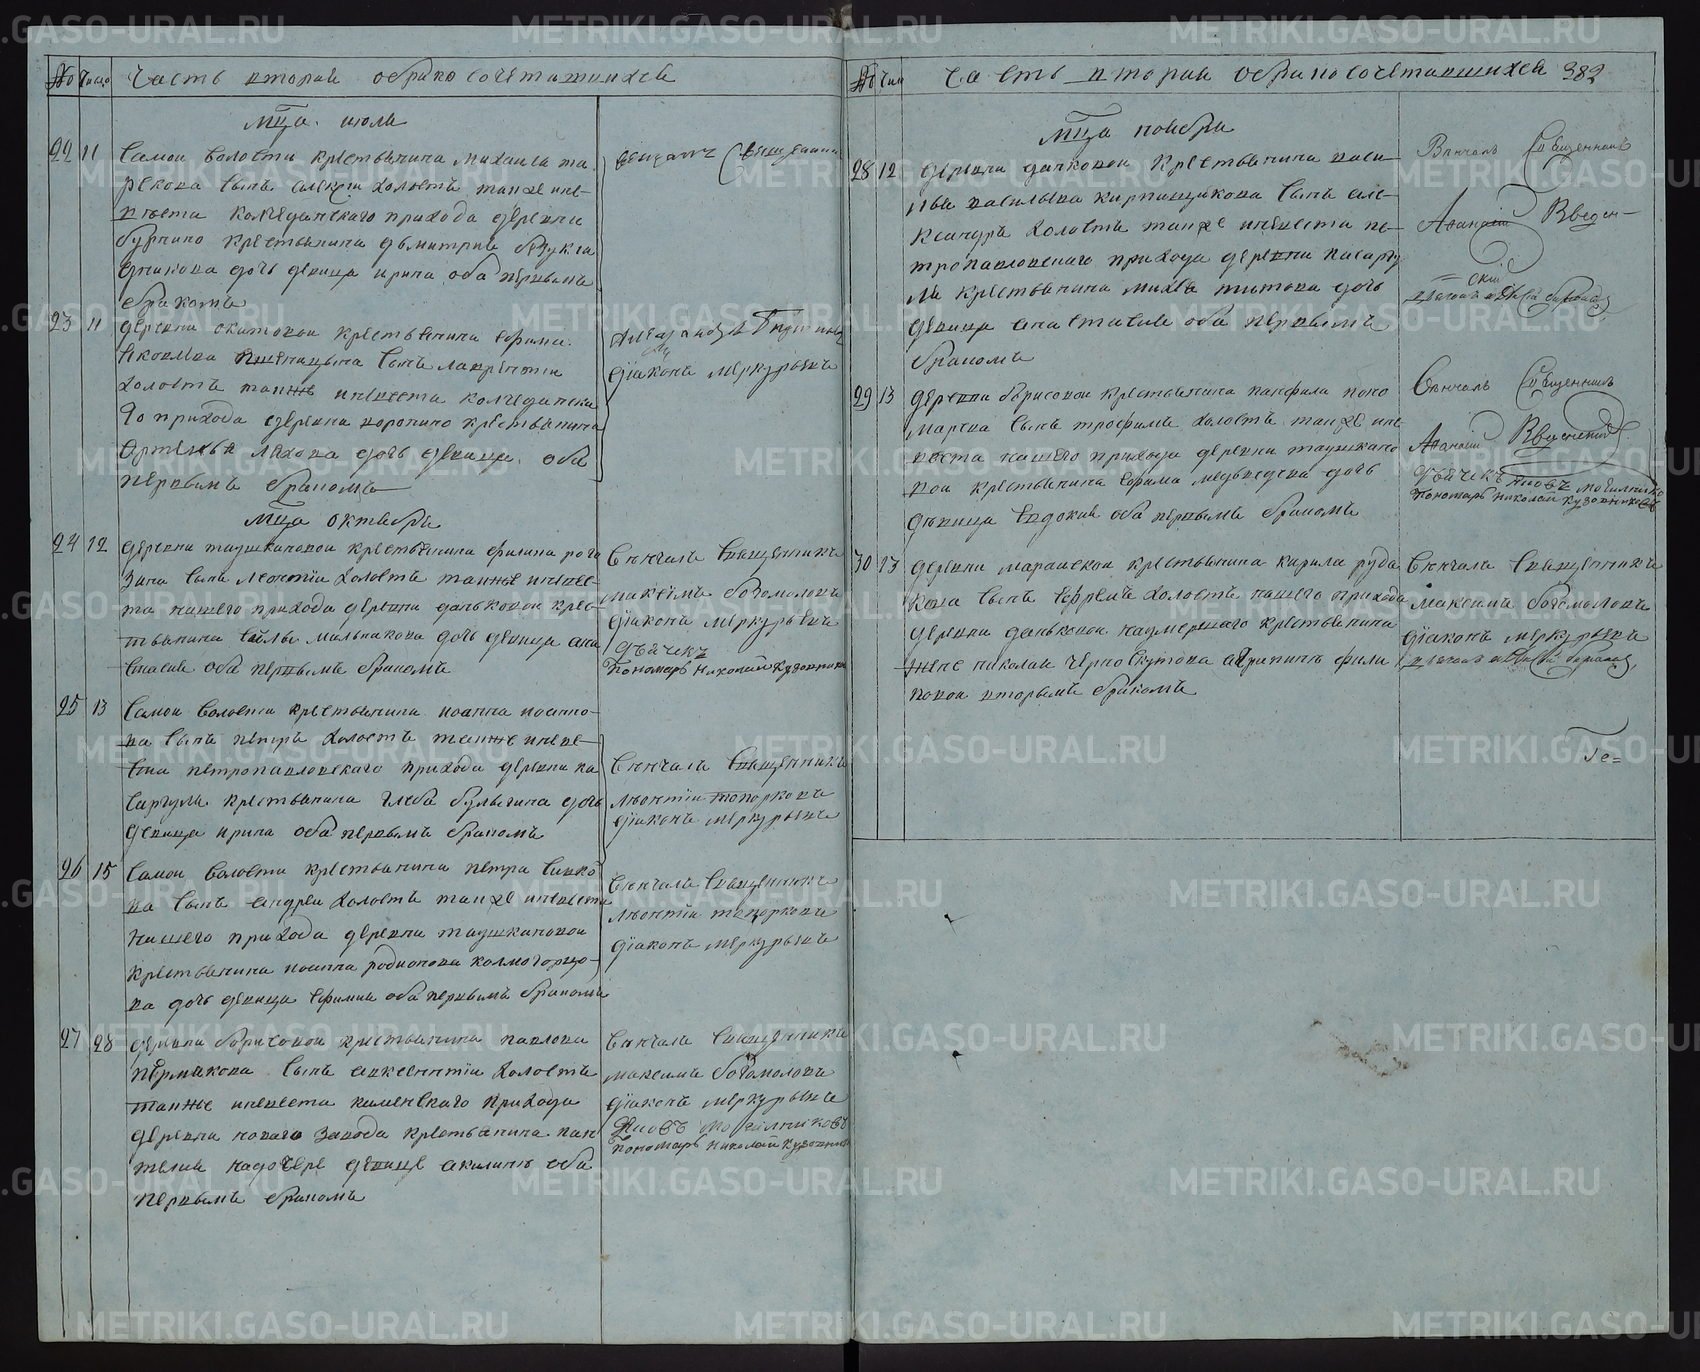 № Число Часть вторая о бракосочетавшихся
Мца июля
22 11 Самой волости крестьянина Михаила та
рекова сынъ Алексей холостъ также неве
веста Колчеданскаго прихода деревни
Бурнино крестьянина Дьмитрия
дочь девица Ирина оба первымъ
бракомъ
венчалъ Священникъ
23 11 деревни окатовой крестьянина Ефима
Яковлева Пшеницына сынъ Лаврентий
холостъ также невеста Колчеданска
го прихода деревни воронино крестьянина
Артемья Ляхова дочь девица оба
первымъ бракомъ
диаконъ Меркурьевъ
Мца октября
24 12 деревни таушкановой крестьянина Филипа рога
зина сынъ Леонтий холостъ также невес
та нашего прихода деревни даньковой крес
тьянина Мальнакова дочь девица ана
стасия оба первымъ бракомъ
Венчалъ Священникъ
Максимъ Богомоловъ
диаконъ Меркурьевъ
Дьячекъ
Пономарь Николай Кузовников
25 13 Самой волости крестьянина иоанна иоанно
ва сынъ петръ холостъ также невес
ста петропавловскаго прихода деревни ка
саргули крестьянина Глеба Булыгина дочь
девица ирина оба первымъ бракомъ
Венчалъ Священникъ
Леонтий Топорковъ
диаконъ Меркурьевъ
26 15 Самой волости крестьянина петра Сивко
ва сынъ андрей холостъ также невеста
нашего прихода деревни таушкановой
крестьянина иоанна родионова колмогорцо
ва дочь девица ефимия оба первымъ бракомъ
Венчалъ Священникъ
Леонтий Топорковъ
диаконъ Меркурьевъ
27 28 деревни борисовой крестьянина павлова
пермякова сынъ авксентий холостъ
также невеста каменскаго прихода
деревни новаго завода крестьянина пан
телия надочере девице акилине оба
первымъ бракомъ
Венчалъ Священникъ
максимъ Богомоловъ
диаконъ Меркурьевъ
Яковъ Могилниковъ
Пономарь Николай Кузовников
№ Чис Часть вторая о бракосочетавшихся 382
Мца ноября
28 12 деревни данковой крестьянина васи
лья васильева кирпищикова сынъ але
ксандръ холостъ также невеста пе
тропавловскаго прихода деревни касаргу
ли крестьянина михея титова дочь
девица анастасия оба первымъ
бракомъ
Венчалъ Священникъ
Афанасий Введен
ский
29 13 деревни борисовой крестьянина панфила поно
марева сынъ трофимъ холостъ также не
веста нашего прихода деревни таушкано
вой крестьянина ефима медведева дочь
девица Евдокия оба первымъ бракомъ
Венчалъ Священникъ
Афанасий Введенский
Дьячекъ Яковъ Могилников
Пономарь Николай Кузовников
30 13 деревни марайской крестьянина кирила руда
кова сынъ ефремъ холостъ нашего прихода
деревни даньковой надмершаго крестьянина
жене николая черноскутова агрипине фили
повой вторымъ бракомъ
Венчалъ Священникъ
Максимъ Богомоловъ
диаконъ Меркурьевъ
Ге=
METRIKI.GASO-URAL.RU